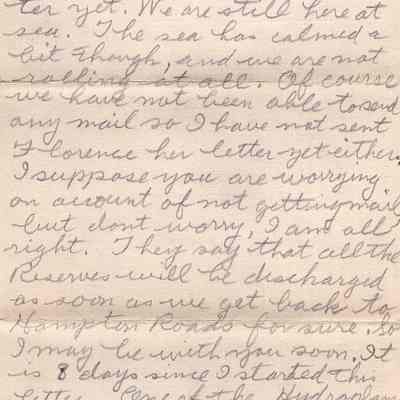 ter yet. We are still here at
sea. The sea has calmed a
bit though, and we are not
rolling at all. Of course
we have not been able to send
any mail so I have not sent
Florence her letter yet either.
I suppose you are worrying
on account of not getting mail
but dont worry, I am all
right. They say that all the
Reserves will be discharged
as soon as we get back to
Hampton Roads for sure. So
I may be with you soon. It
is 8 days since I started this
letter. One of the Hydroplan